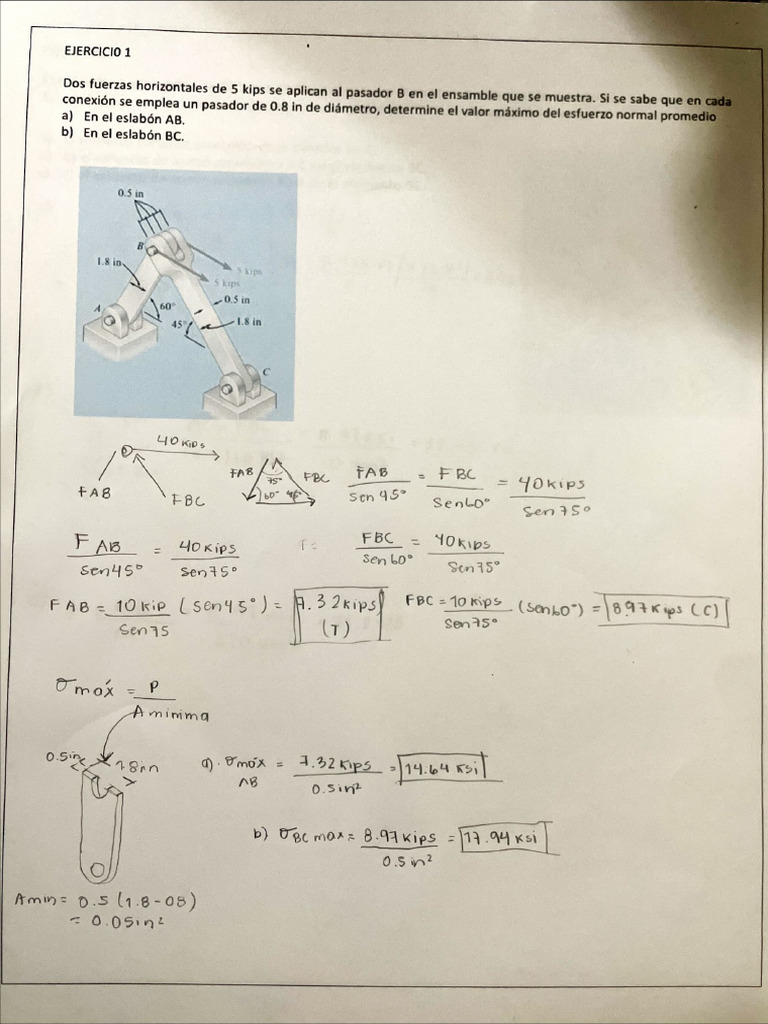 EJERCICIO 1
Dos fuerzas horizontales de 5 kips se aplican al pasador B en el ensamble que se muestra. Si se sabe que en cada
conexión se emplea un pasador de 0.8 in de diámetro, determine el valor máximo del esfuerzo normal promedio
a) En el eslabón AB.
b) En el eslabón BC.
0.5 in
B
1.8 in.
5 kips
5 kips
0.5 in
A
60°
45°
1.8 in
C
40 KIPS
FAB
FBC
FAB
75°
FBC
60°
45°
FAB / Sen 45° = FBC / Sen60° = 40 KIPS / Sen 75°
FAB / Sen45° = 40 KIPS / Sen75°
FBC / Sen 60° = 40 KIPS / Sen 75°
FAB = 10 KIP / Sen 75 (Sen45°) = 7.32 KIPS (T)
FBC = 10 KIPS / Sen 75° (Sen60°) = 8.97 KIPS (C)
σmáx = P / A minima
0.5in
1.8in
a). σmáx AB = 7.32 KIPS / 0.5in² = 14.64 KSi
b) σBC max = 8.97 KIPS / 0.5 in² = 17.94 KSi
A min = 0.5 (1.8-08)
= 0.05in²